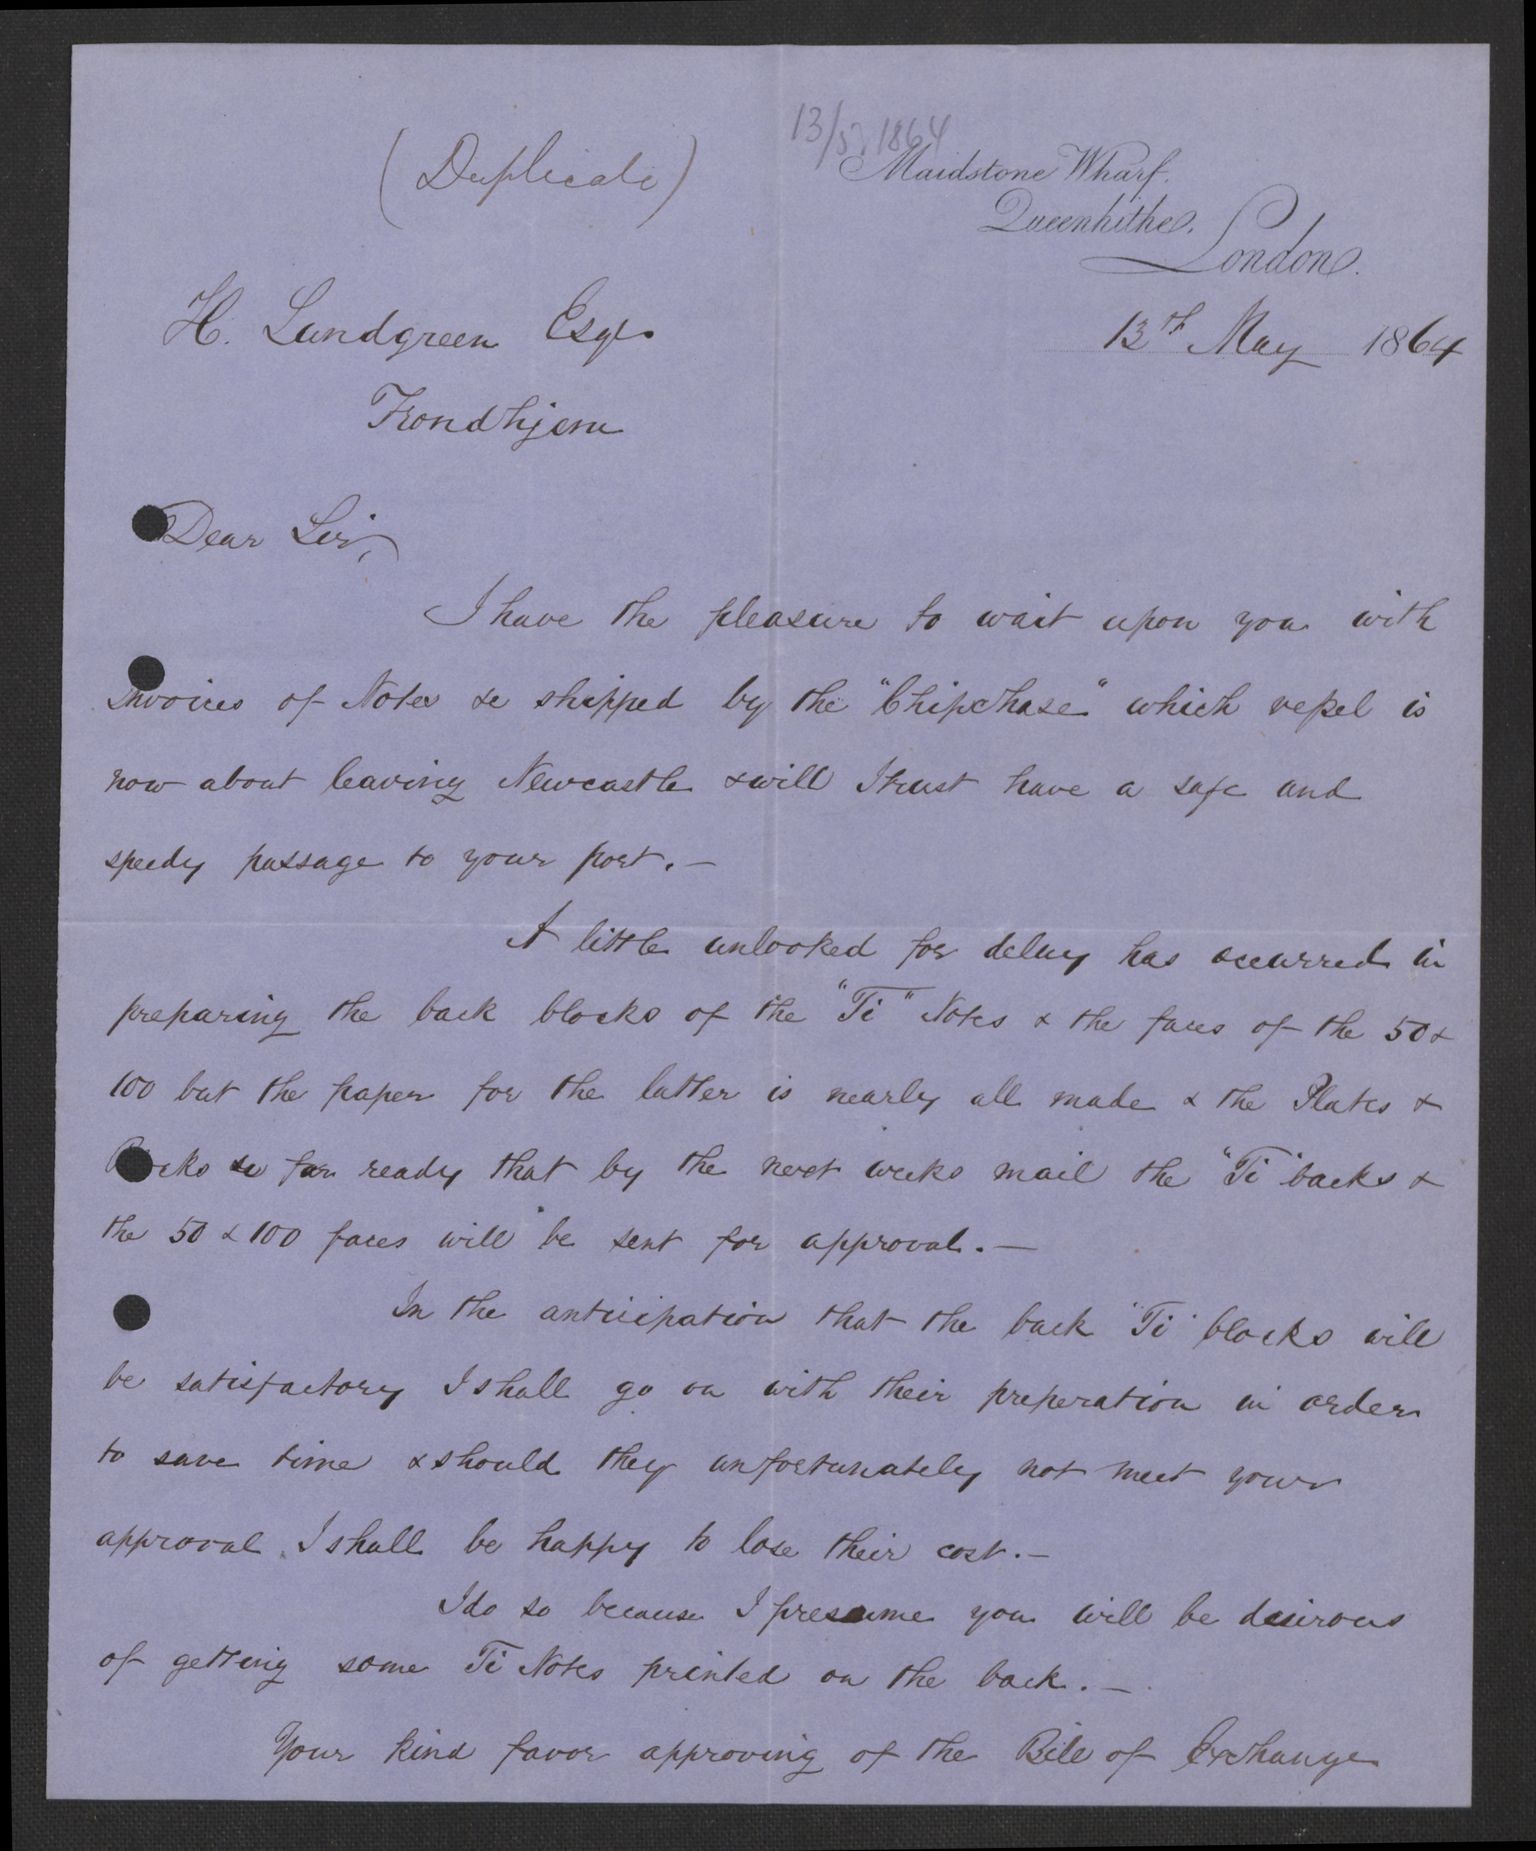 13/5. 1864
(Duplicate)
Maidstone Wharf.
Queenhithe.
London.
13th May 1864
H. Lundgreen Esqre
Trondhjem
Dear Sir,
I have the pleasure to wait upon you with
Invoices of Notes &c shipped by the "Chipchase" which vessel is
now about leaving Newcastle & will I trust have a safe and
speedy passage to your port. —
A little unlooked for delay has occurred in
preparing the back blocks of the "Ti" Notes & the faces of the 50 &
100 but the paper for the latter is nearly all made & the Plates &
Blocks so far ready that by the next weeks mail the "Ti" backs &
the 50 & 100 faces will be sent for approval. —
In the anticipation that the back "Ti" blocks will
be satisfactory I shall go on with their preperation in order
to save time & should they unfortunately not meet your
approval I shall be happy to lose their cost. —
I do so because I presume you will be desirous
of getting some Ti Notes printed on the back. —
Your kind favor approving of the Bill of Exchange